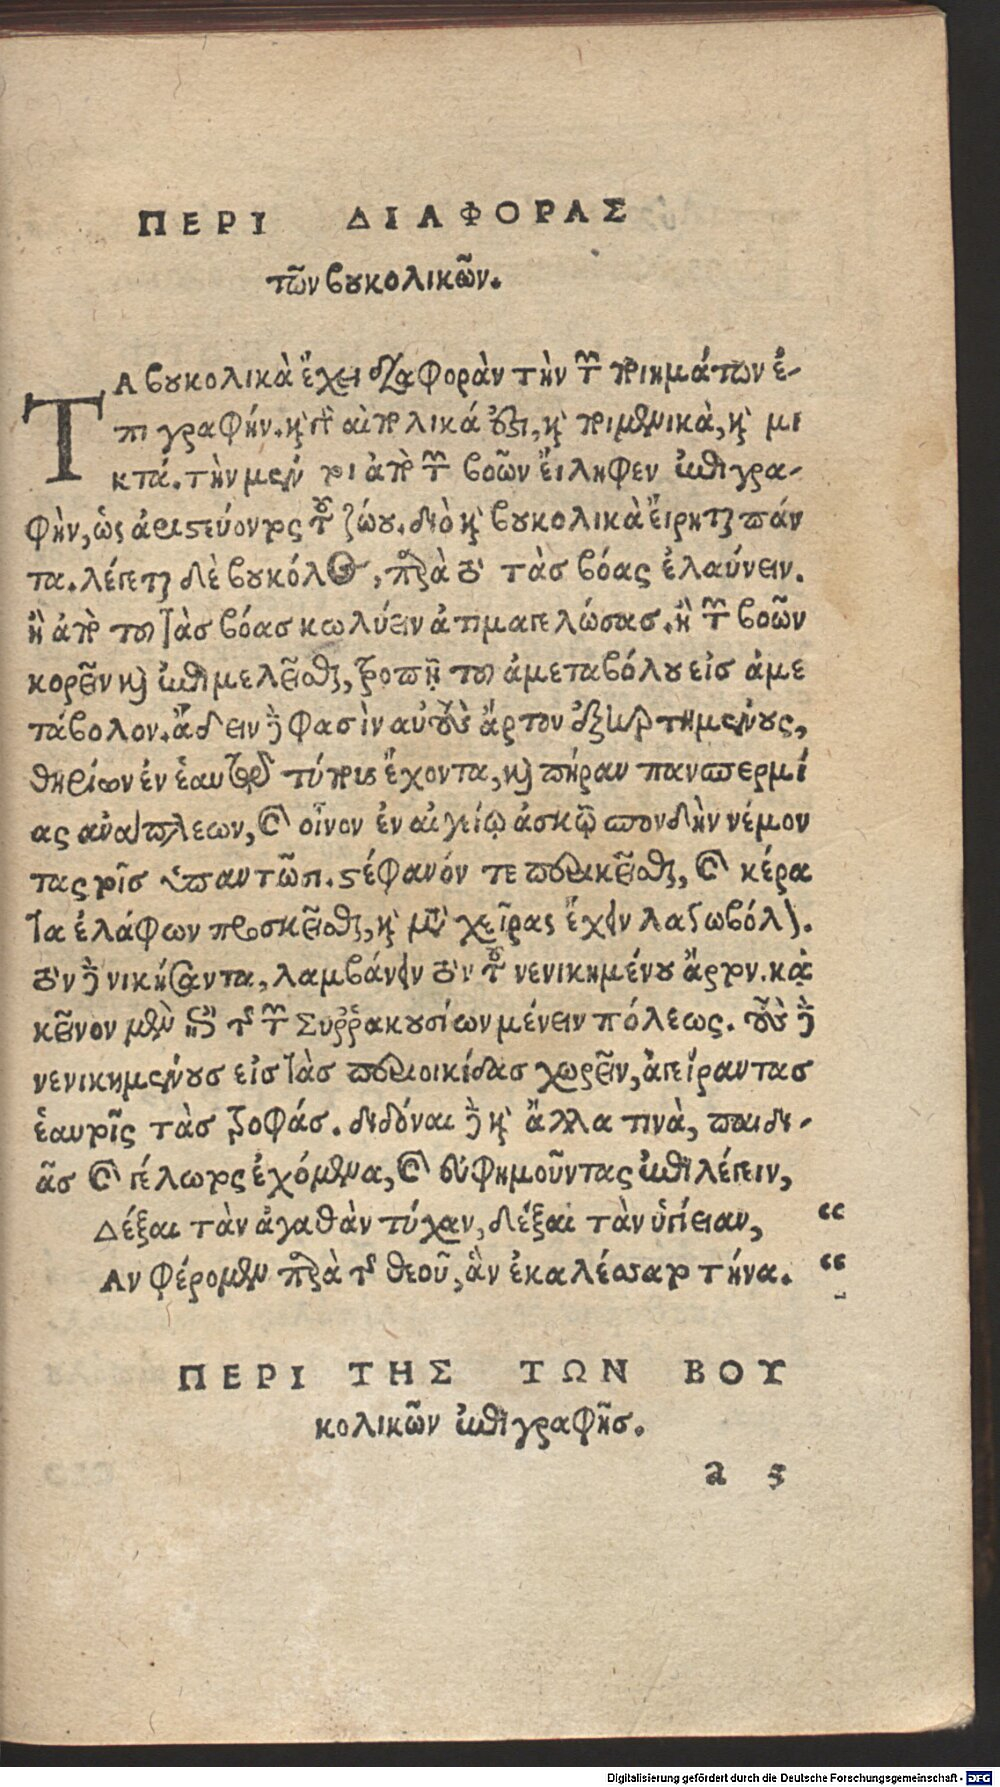 ΠΕΡΙ ΔΙΑΦΟΡΑΣ
τῶν βουκολικῶν.
ΤΑ βουκολικὰ ἔχει διαφορὰν τὴν τῶν ποιημάτων ἐ-
πιγραφήν. καὶ γὰρ αἰπολικά ἐστι, καὶ ποιμενικὰ, καὶ μι
κτά. τὴν μέν τοι ἀπὸ τῶν βοῶν εἴληφεν ἐπιγρα-
φὴν, ὡς ἀριστεύοντος τοῦ ζώου. διὸ καὶ βουκολικὰ εἴρηται πάν
τα. λέγεται δὲ βουκόλος, παρὰ τὸ τὰς βόας ἐλαύνειν.
ἢ ἀπὸ τοῦ τὰς βόας κωλύειν ἀτιμαγελώσας. ἢ τῶν βοῶν
κορεῖν καὶ ἐπιμελεῖσθαι, τροπῇ τοῦ ἀμεταβόλου εἰς ἀμε
τάβολον. ᾄδειν δέ φασὶν αὐτοὺς ἄρτον ἐξηρτημένους,
θηρίων ἐν ἑαυτῷ τύπους ἔχοντα, καὶ πήραν πανσπερμί
ας ἀνάπλεων, καὶ οἶνον ἐν αἰγείῳ ἀσκῷ σπονδὴν νέμον
τας τοῖς ὑπαντῶσι. στέφανόν τε περικεῖσθαι, καὶ κέρα
τα ἐλάφων προσκεῖσθαι, καὶ μετὰ χεῖρας ἔχειν λαγωβόλον.
τὸν δὲ νικήσαντα, λαμβάνειν τὸν τοῦ νενικημένου ἄρτον. κἀ
κεῖνον μὲν ἐπὶ τῆς τῶν Συῤῥακουσίων μένειν πόλεως. τοὺς δὲ
νενικημένους εἰς τὰς περιοικίδας χωρεῖν, ἀγείραντας
ἑαυτοῖς τὰς τροφάς. διδόναι δὲ καὶ ἄλλα τινὰ, παιδι-
ᾶς καὶ γέλωτος ἐχόμενα, καὶ εὐφημοῦντας ἐπιλέγειν,
Δέξαι τὰν ἀγαθὰν τύχαν, δέξαι τὰν ὑγίειαν, “
Ἃν φέρομεν παρὰ τῆς θεοῦ, ἃν ἐκαλέσσατο τήνα. “
ΠΕΡΙ ΤΗΣ ΤΩΝ ΒΟΥ
κολικῶν ἐπιγραφῆς.
a 5
Digitalisierung gefördert durch die Deutsche Forschungsgemeinschaft - DFG